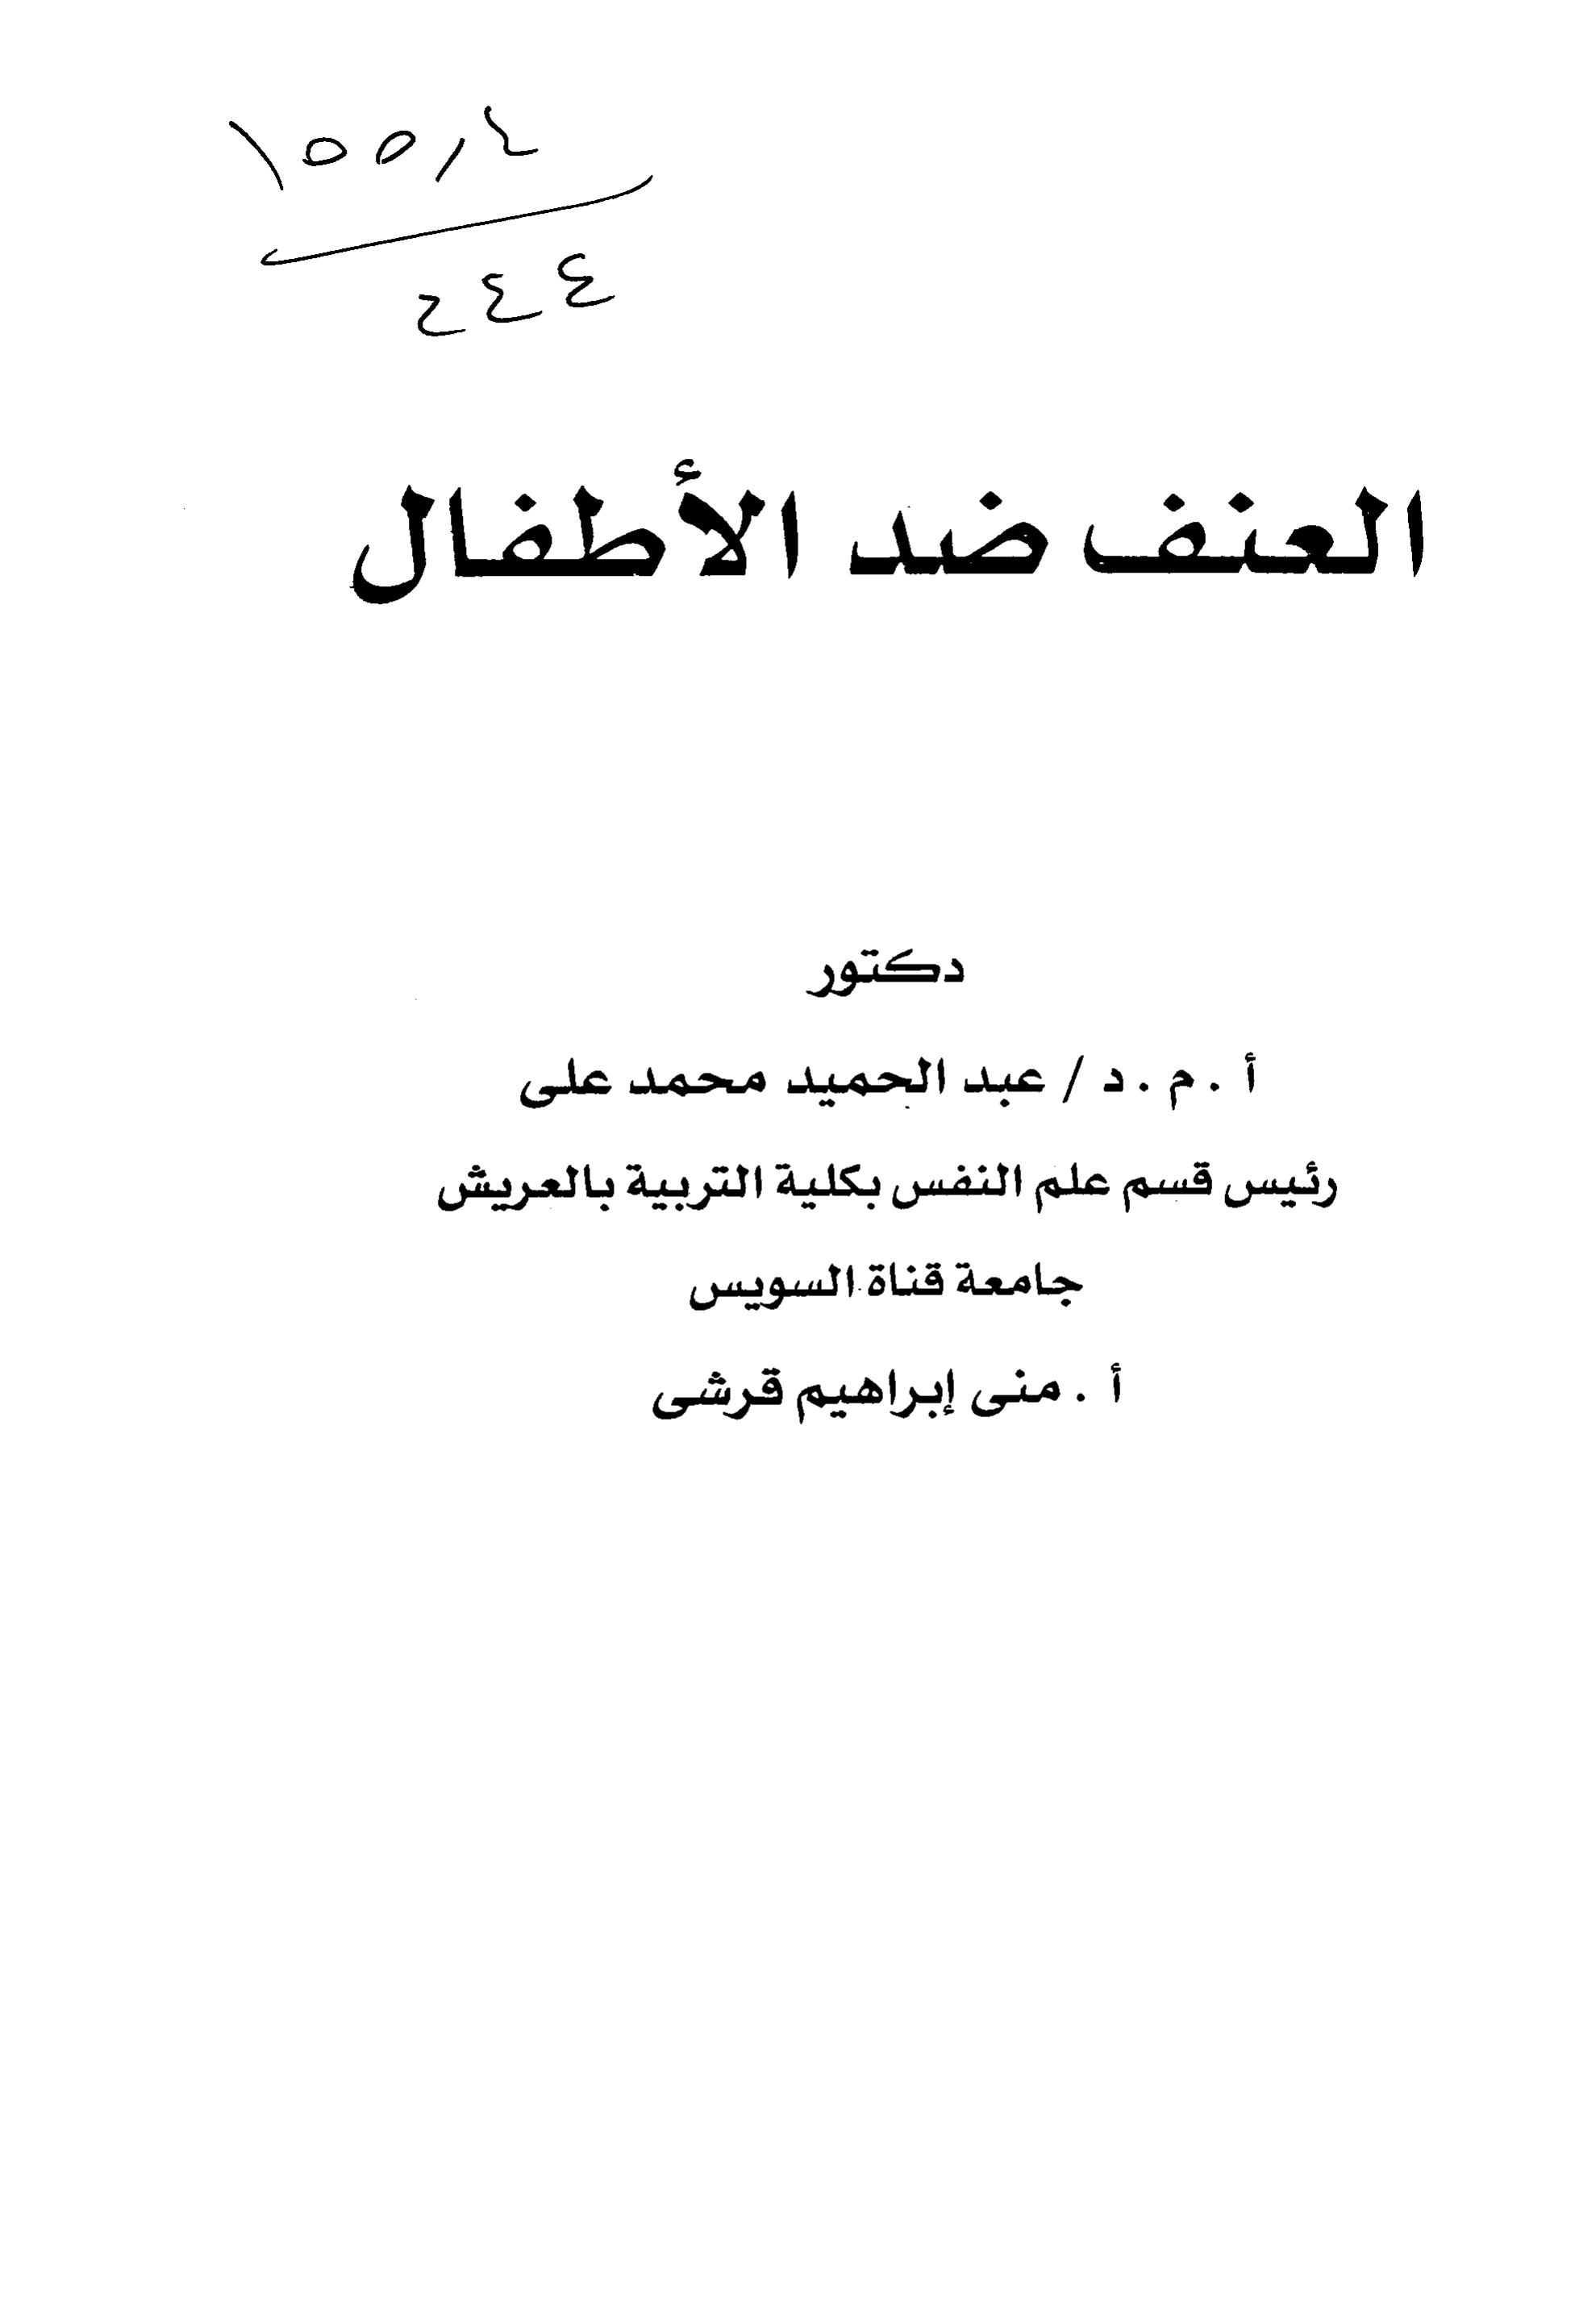 ١٥٥,٤
٤٤٤
العنف ضد الأطفال
دكتور
أ . م . د / عبد الحميد محمد على
رئيس قسم علم النفس بكلية التربية بالعريش
جامعة قناة السويس
أ . منى إبراهيم قرشى